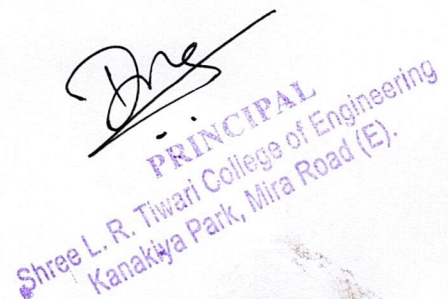 PRINCIPAL
Shree L. R. Tiwari College of Engineering
Kanakiya Park, Mira Road (E).